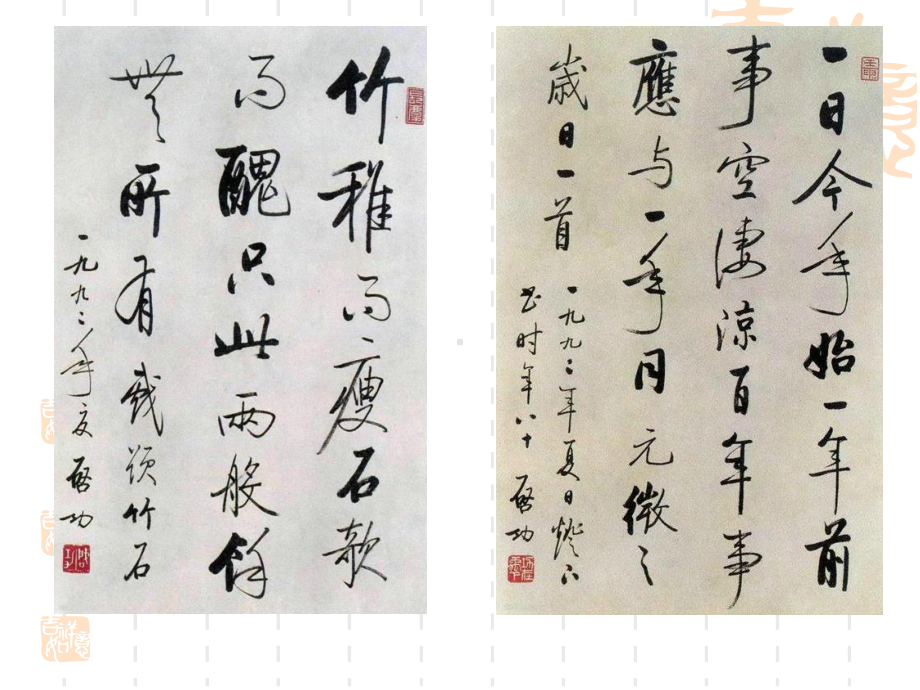 竹稚而瘦石欹
而醜只此兩般餘
無所有戲題竹石
一九九二年夏啓功
一日今年始一年前
事空淒涼百年事
應与一年同元微之
歲日一首
一九九二年夏日燈下
书时年八十啓功